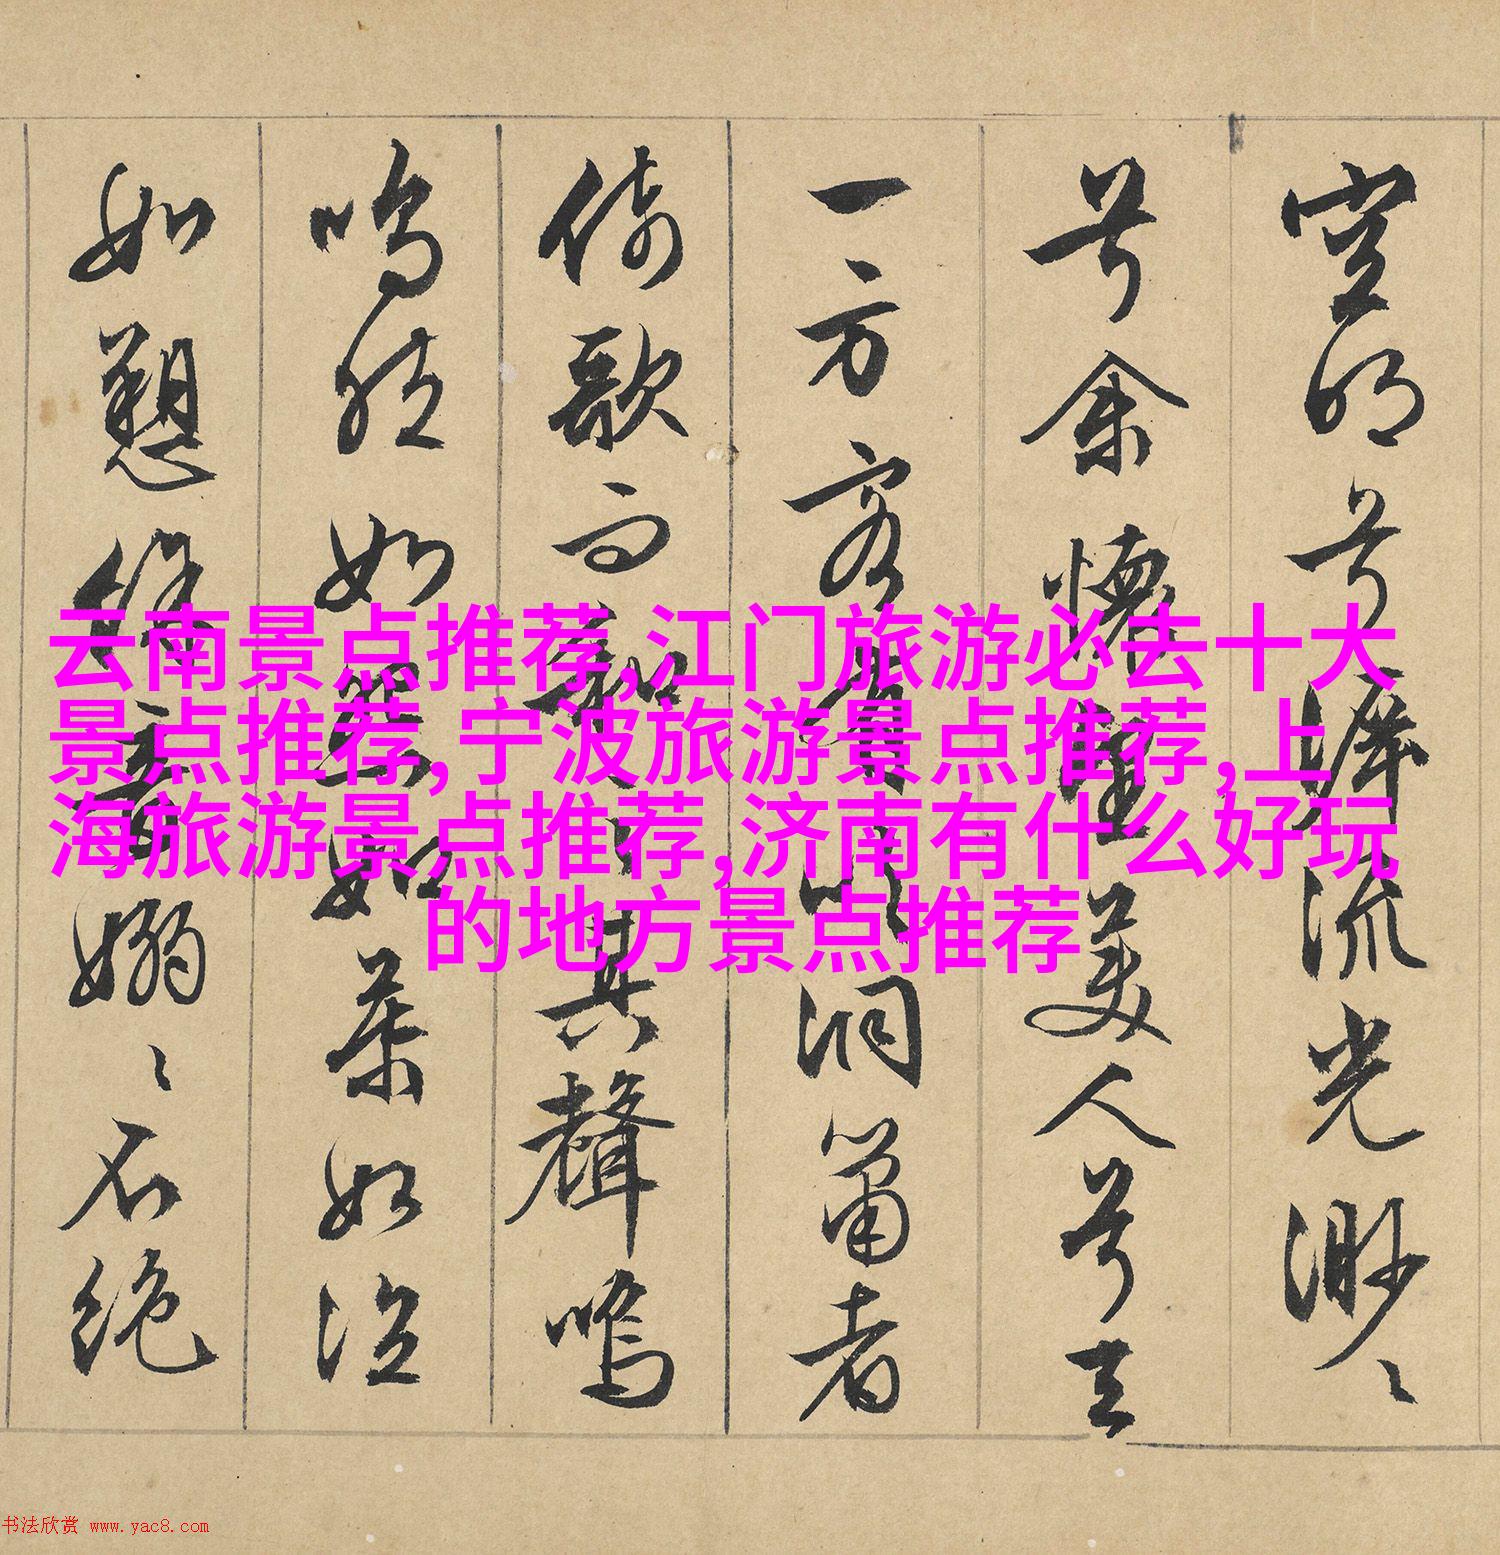 空明兮泝流光渺〻
兮余懷望美人兮天
一方客有吹洞簫者
倚歌而和之其聲嗚
嗚然如怨如慕如泣
如愬餘音嫋〻不絕
云南景点推荐,江门旅游必去十大
景点推荐,宁波旅游景点推荐,上
海旅游景点推荐,济南有什么好玩
的地方景点推荐
书法欣赏 www.yac8.com